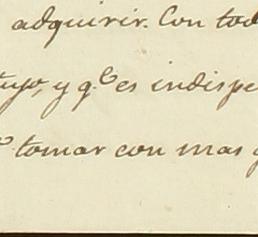 adquirir. Con tod
tuyo, y q.e es indispe
o tomar con mas g